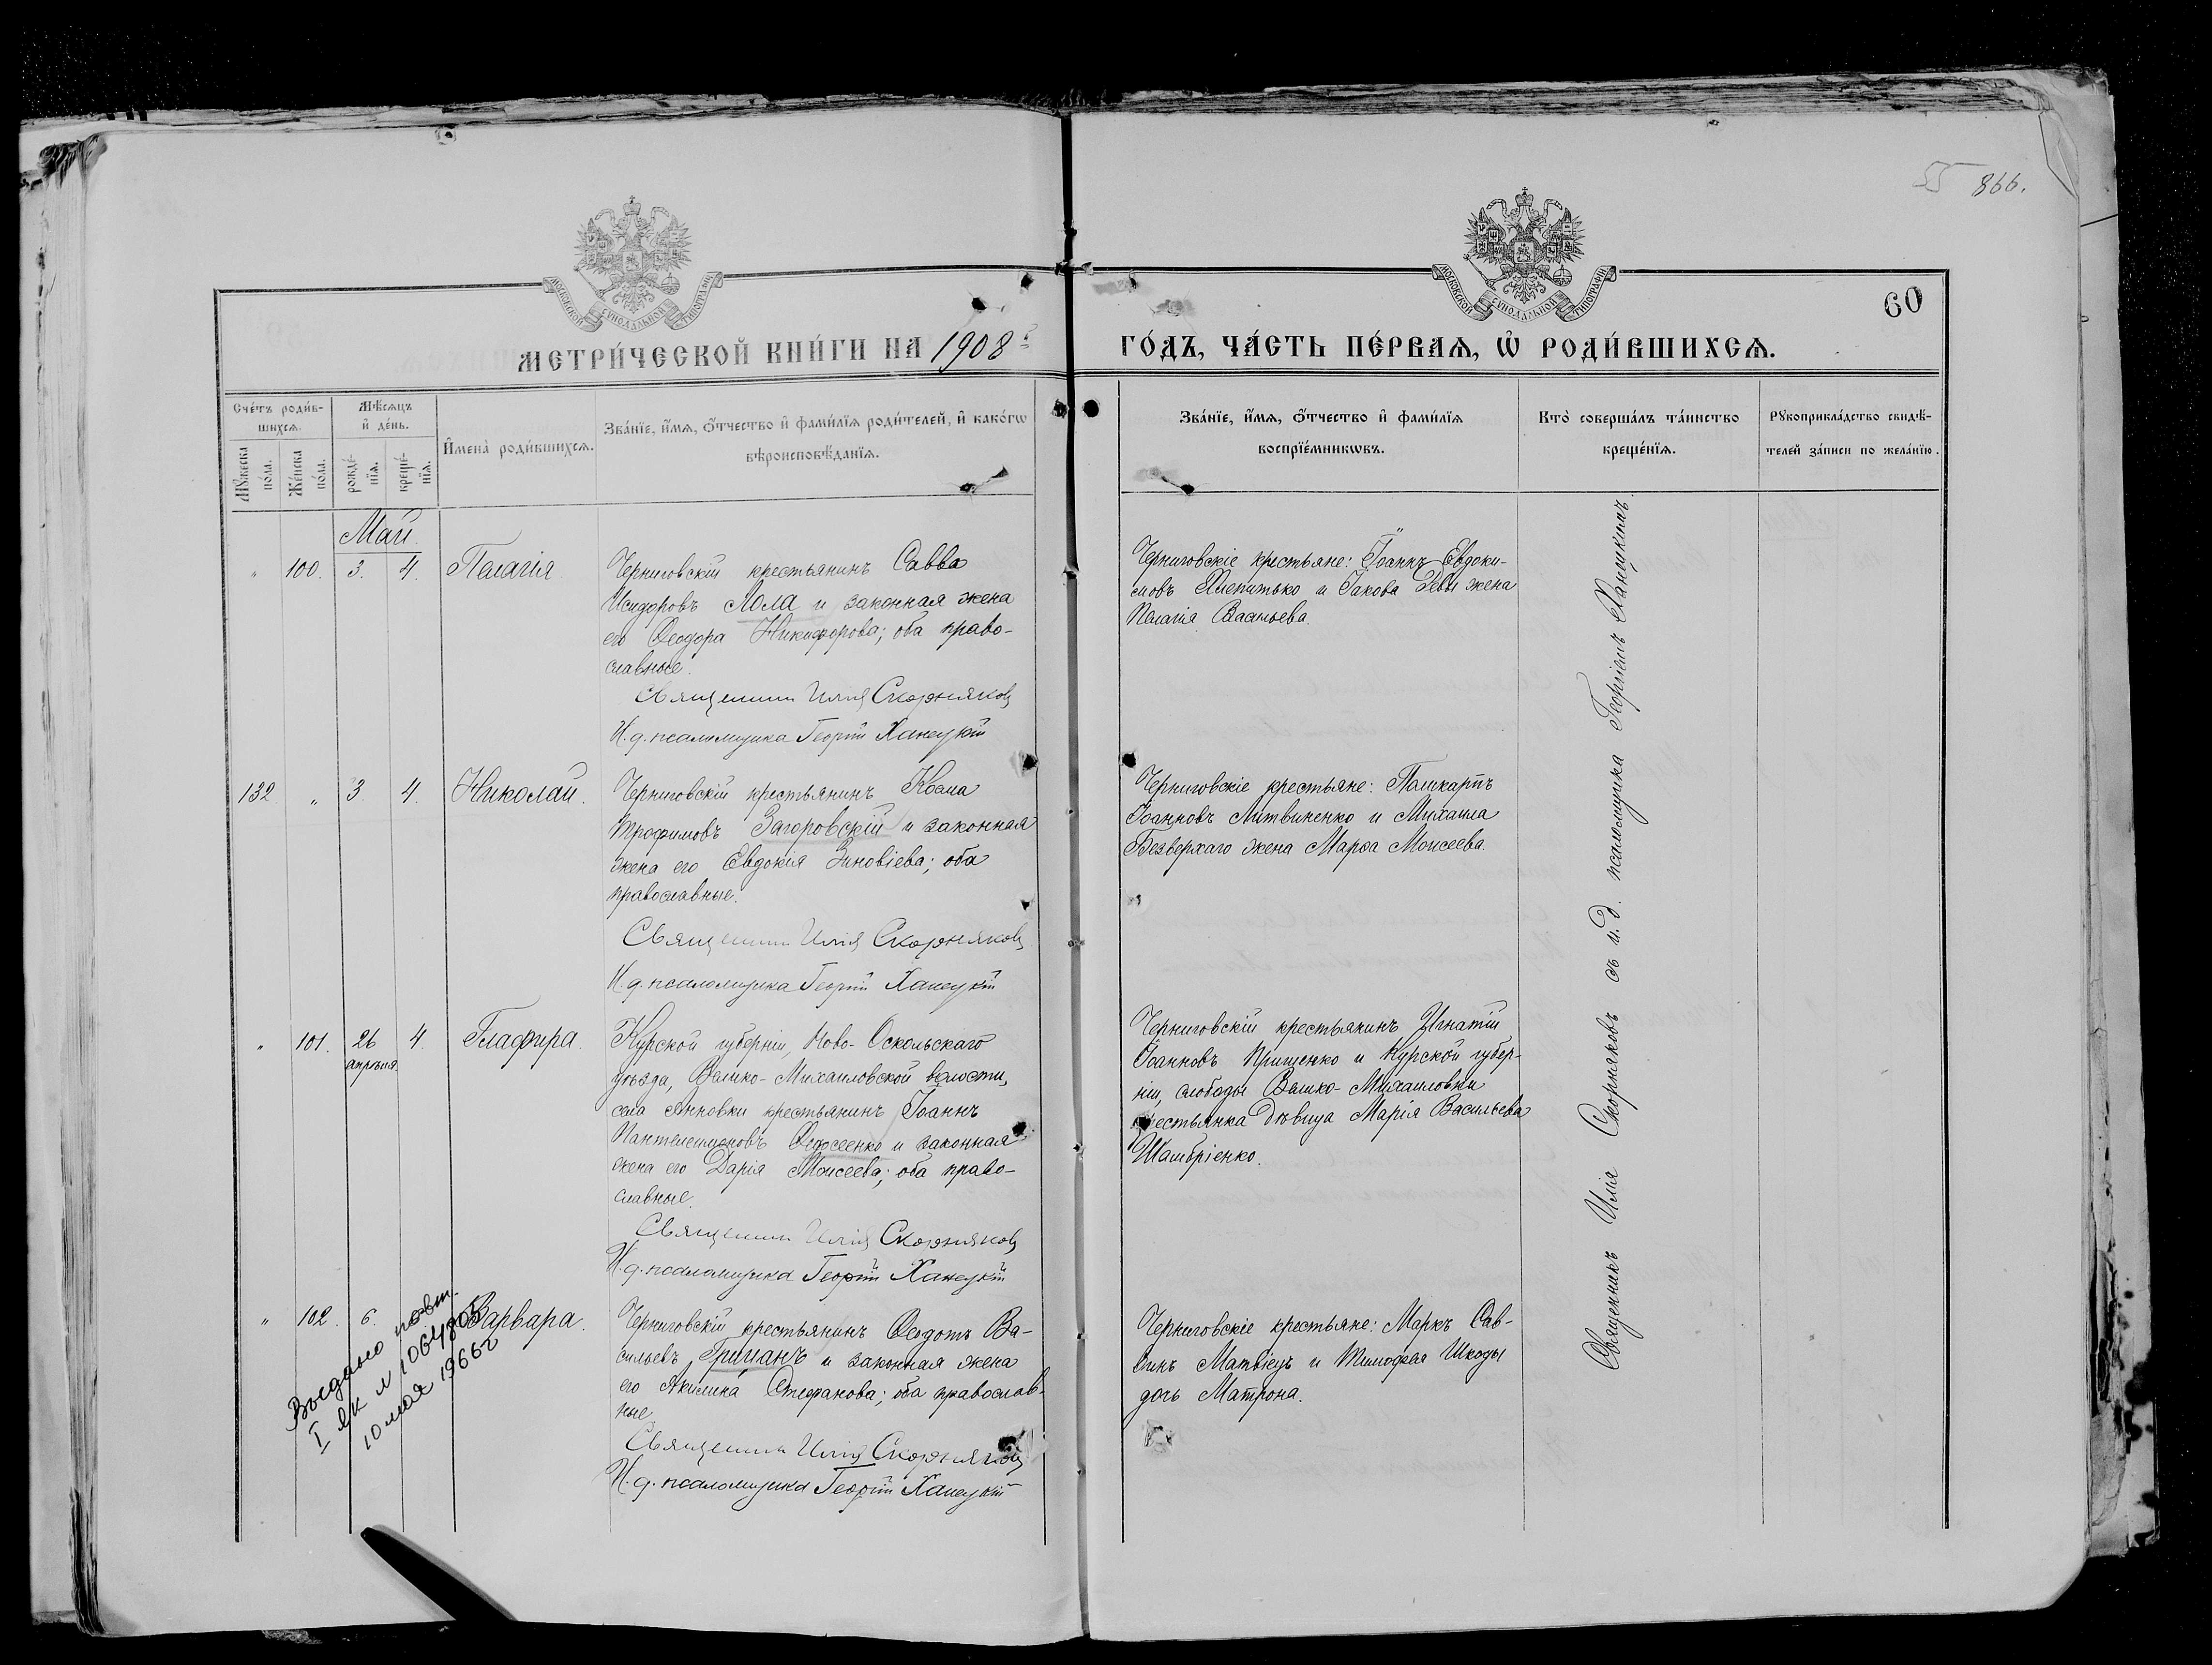 55 866.
МОСКОВСКОЙ СУНОДАЛЬНОЙ ТИПОГРАФИИ
МОСКОВСКОЙ СУНОДАЛЬНОЙ ТИПОГРАФИИ
60
МЕТРИ́ЧЕСКОЙ КНИ́ГИ НА 1908й ГО́ДЪ, ЧА́СТЬ ПЕ́РВАѦ, Ѡ РОДИ́ВШИХСѦ.
Сче́тъ роди́в-
шихсѧ.
Мѣ́сѧцъ
и҆ де́нь.
Мꙋ́жеска
по́ла.
Же́нска
по́ла.
рожде́-
нїѧ.
креще́-
нїѧ.
И҆мена̀ роди́вшихсѧ.
Зва́нїе, и҆́мѧ, ѻ҆́тчество и҆ фами́лїѧ роди́телей, и҆ како́гѡ
вѣроисповѣ́данїѧ.
Зва́нїе, и҆́мѧ, ѻ҆́тчество и҆ фами́лїѧ
воспрїе́мникѡвъ.
Кто̀ соверша́лъ та́инство
креще́нїѧ.
Рꙋкоприкла́дство свидѣ́-
телей за́писи по жела́нїю.
Май.
" 100. 3. 4. Пелагія.
Черниговскій крестьянинъ Савва
Исидоровъ Лола и законная жена
его Ѳеодора Никифорова; оба право-
славные.
Священник Илія Скорняковъ
И. д. псаломщика Георгій Ханецкій
Черниговскіе крестьяне: Іоаннъ Евдоки-
мовъ и Іакова Девы жена
Пелагія Васильева.
132 " 3 4. Николай.
Черниговскій крестьянинъ Косма
Трофимовъ Загоровскій и законная
жена его Евдокія Зиновіева; оба
православные.
Священник Илія Скорняковъ
И. д. псаломщика Георгій Ханецкій
Черниговскіе крестьяне: Поликарпъ
Іоанновъ Литвиненко и Михаила
Безверхаго жена Марѳа Моисеева.
" 101. 26 4. Глафира.
апрѣля.
Курской губерніи, Ново-Оскольскаго
уѣзда, Велико-Михаиловской волости,
села Анновки крестьянинъ Іоаннъ
Пантелеимоновъ и законная
жена его Дарія Моисеева; оба право-
славные.
Священник Илія Скорняковъ
И. д. псаломщика Георгій Ханецкій
Черниговскій крестьянинъ Игнатій
Іоанновъ Грищенко и Курской губер-
ніи, слободы Велико-Михаиловки
крестьянка дѣвица Марія Васильева
" 102. 6. Варвара.
Выдано повт.
I ЯК № 1064805
10 мая 1966 г
Черниговскій крестьянинъ Ѳеодотъ Ва-
сильевъ и законная жена
его Акилина Стефанова; оба православ-
ные.
Священник Илія Скорняковъ
И. д. псаломщика Георгій Ханецкій
Черниговскіе крестьяне: Маркъ Сав-
винъ Матвіецъ и Тимофея Шкоды
дочь Матрона.
Священникъ Илія Скорняковъ съ и. д. псаломщика Георгіемъ Ханецкимъ.